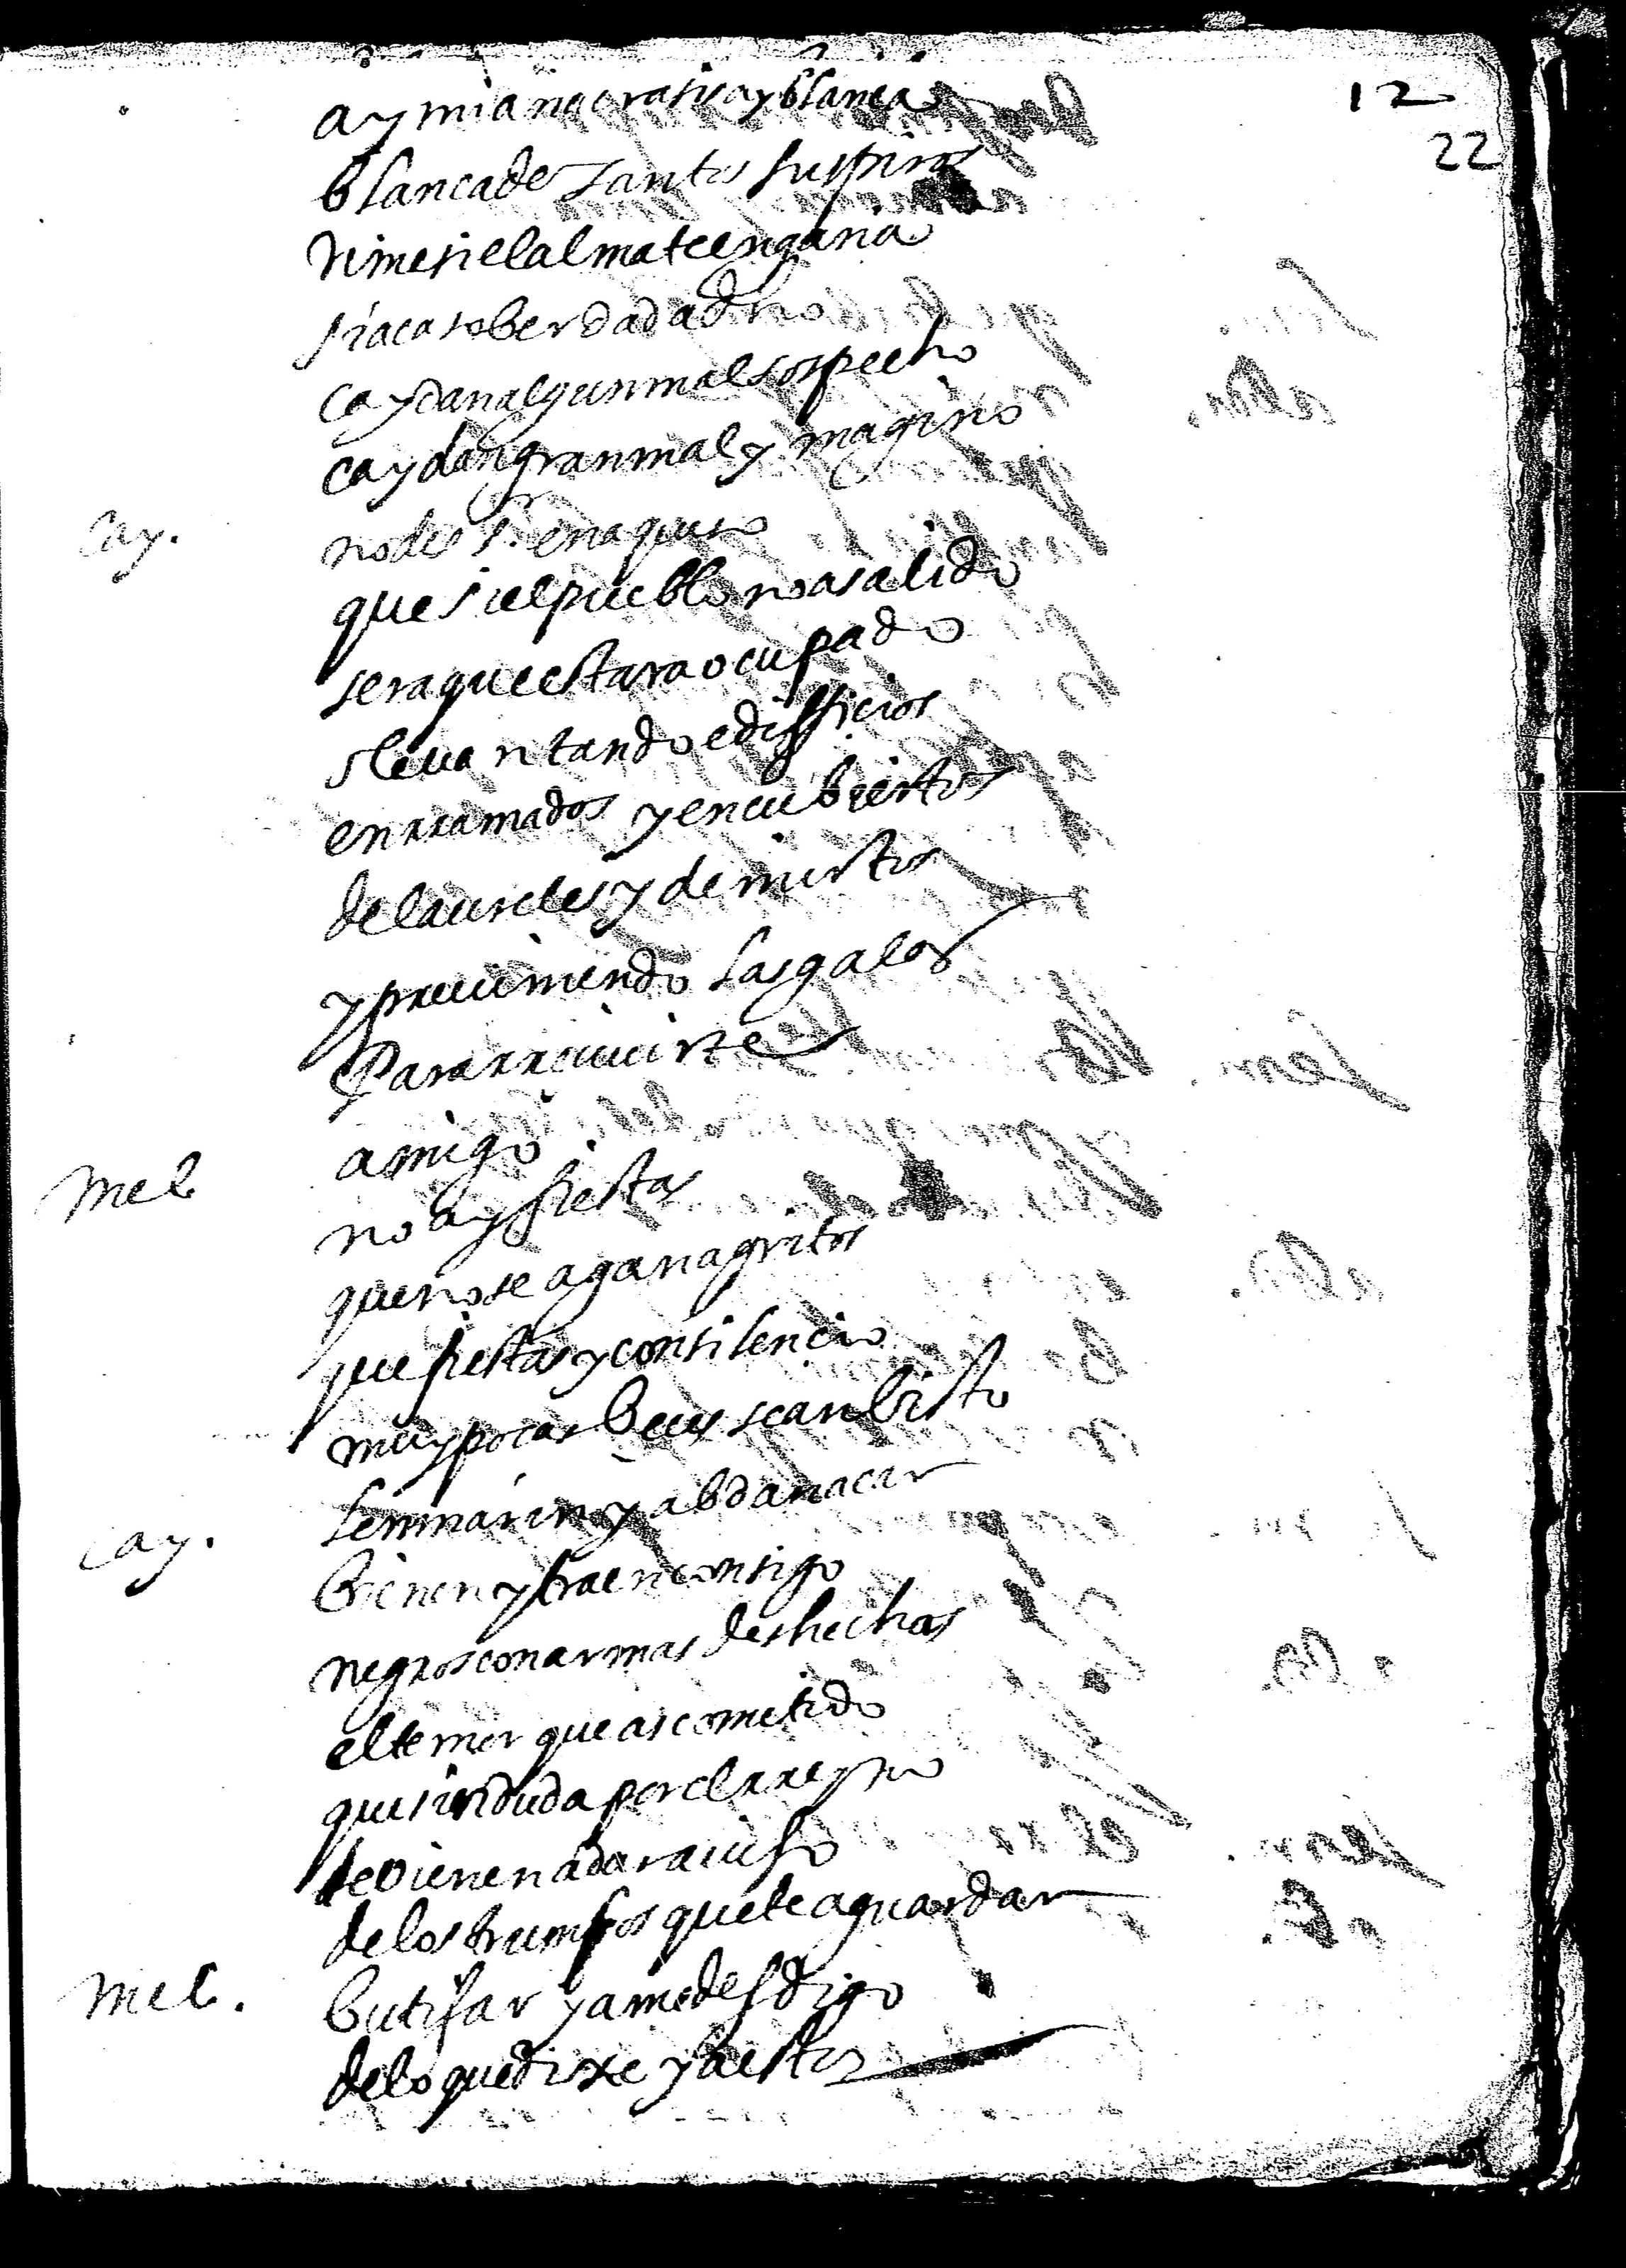 12
22
ay mia negrasisay blanca
blanca de santos suspiros
dime si el alma te engaña
si acaso berdad ad no
caydan algun mal sospecho
caydan gran mal ymagino
Cay. no des s. en aqueso
que si el pueblo no a salido
sera que estara ocupado
lleuantando ediffiçios
enrramados y encubiertos
de laureles y de mirtos
y preuiniendo las galas
Para rreciuirte
amigo.
Mel no ay fiestas
que no se agan a gritos
que fiestas y con silencio
muy pocas beces se an bisto
Cay. seminarin y abdanacar
bienen y traen consigo
negros con armas deshechas
el temor que as cometido
que sin duda por el rreyno
te bienen a dar auiso
de los trumfos que te aguardan
Mel. butifar ya me desdigo
de lo que dixe y a estos